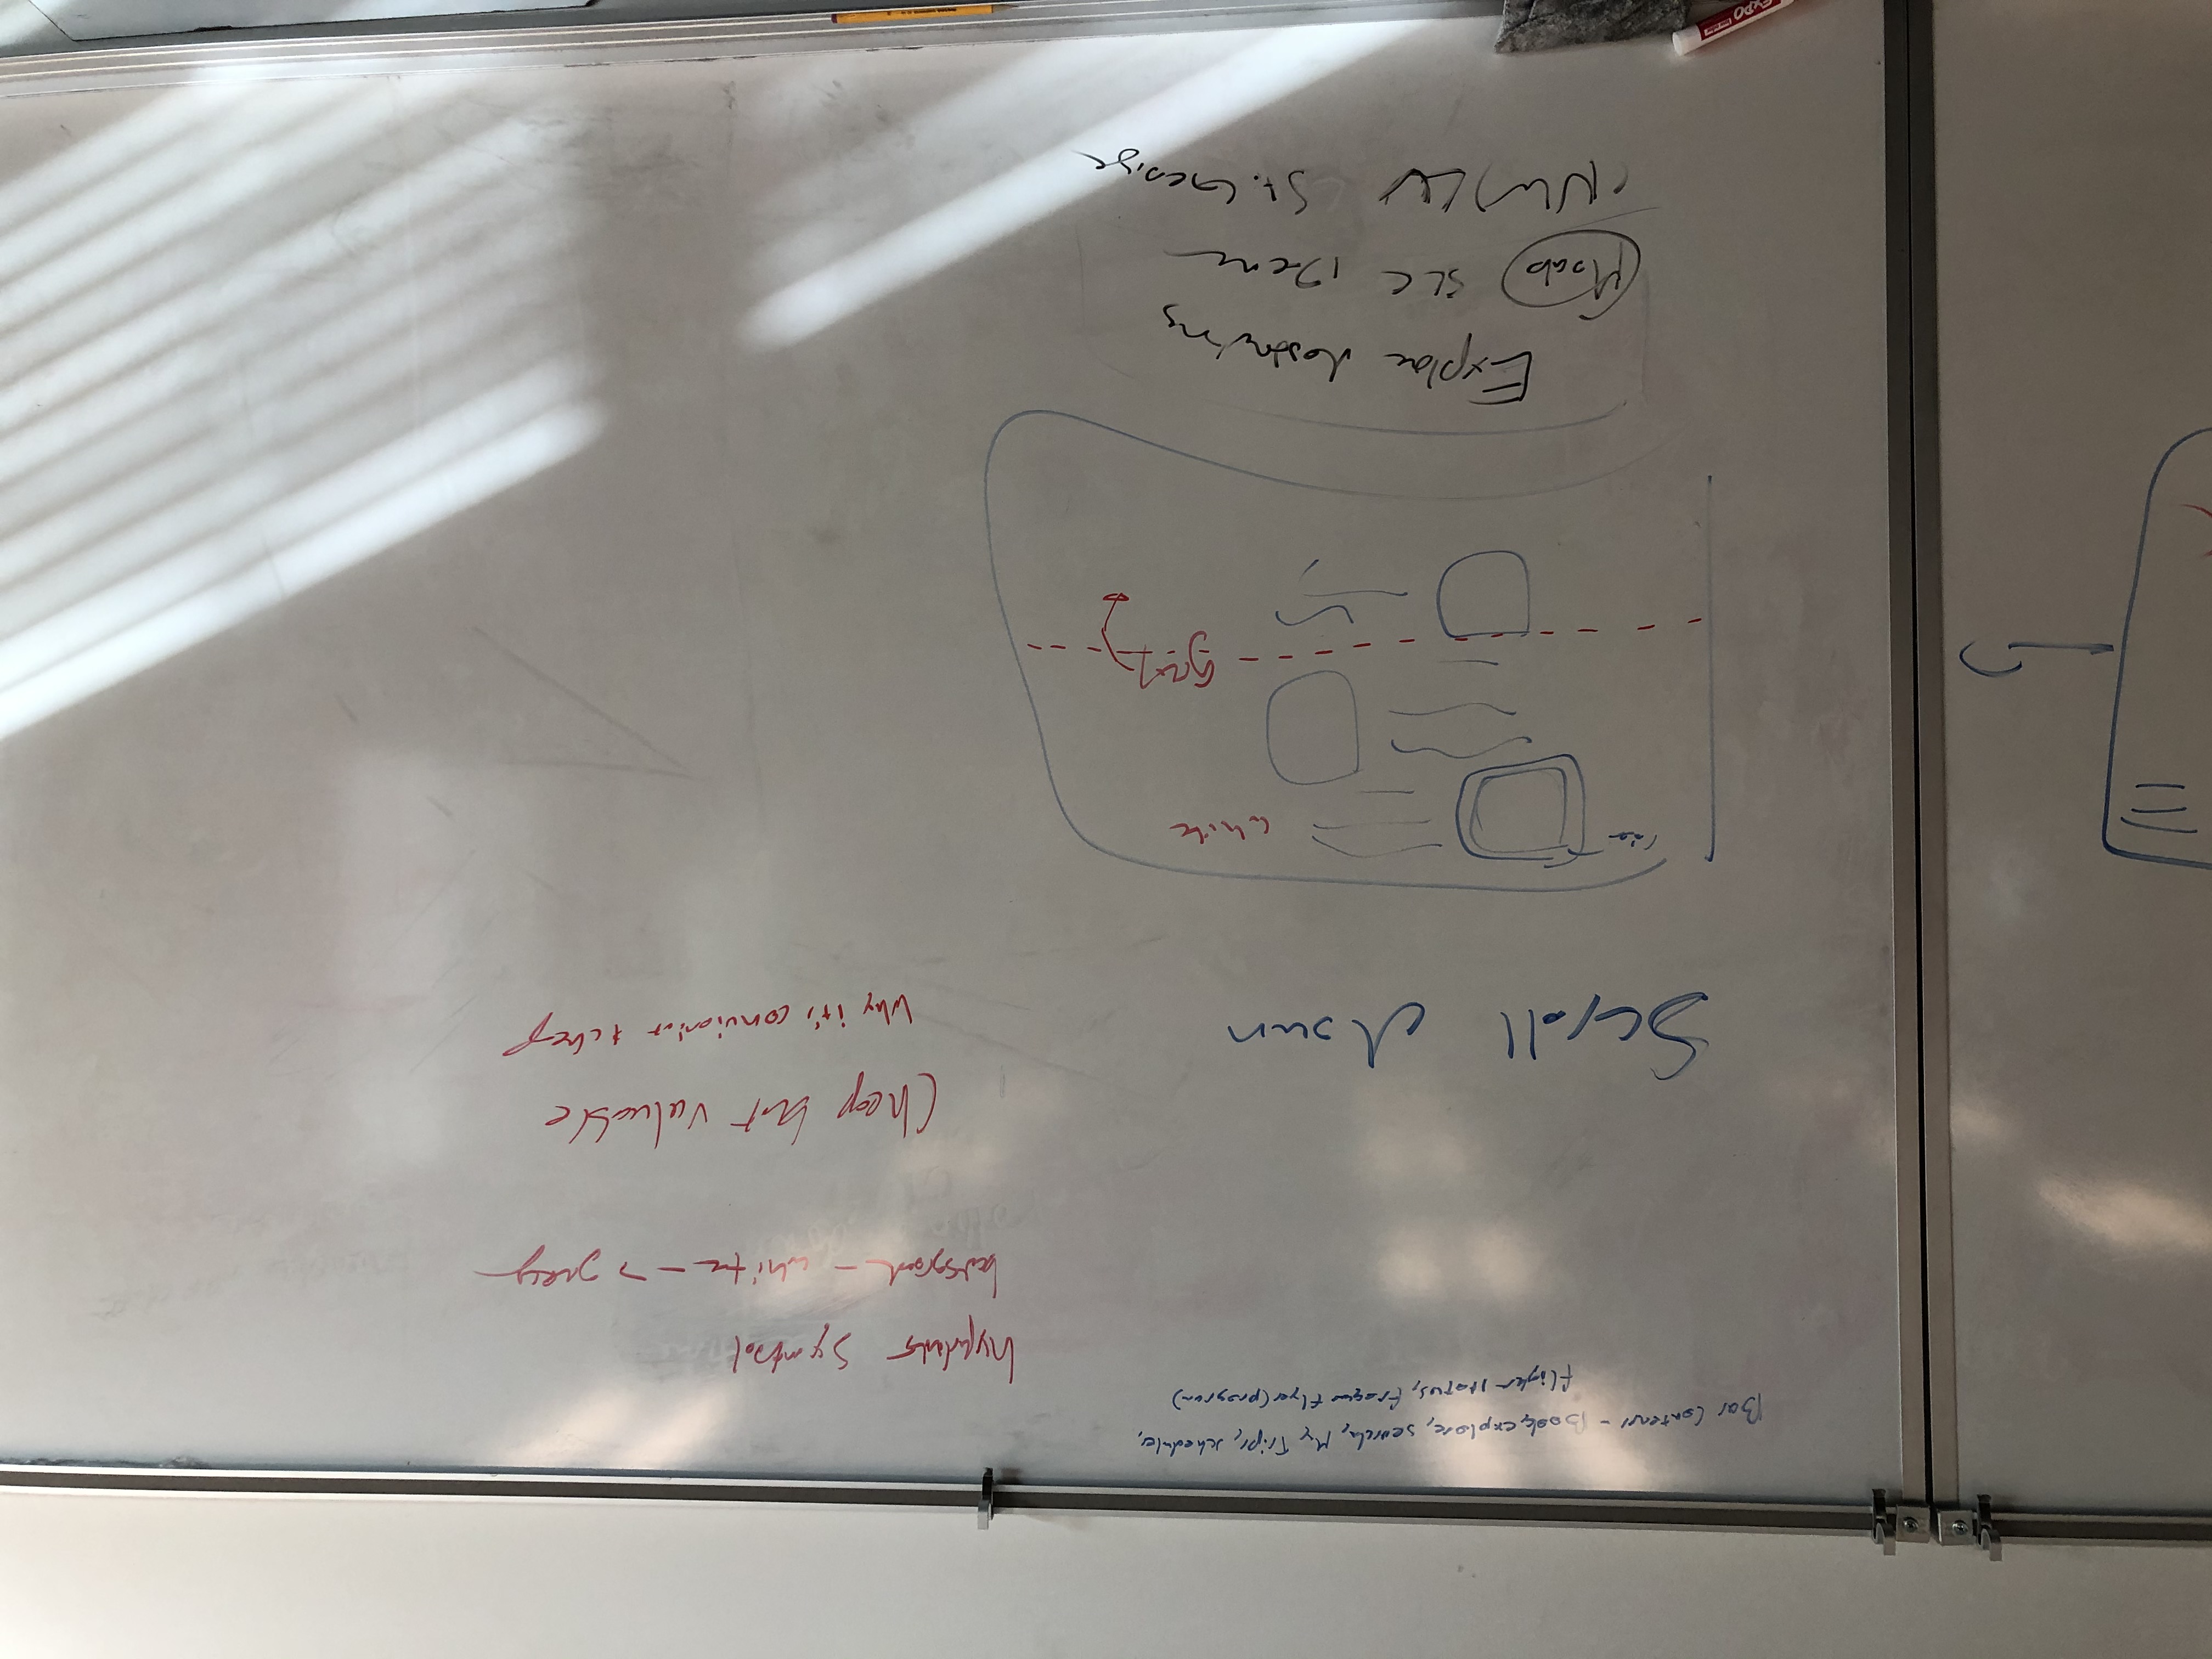 Bar Content - Book, explore, search, My Trips, schedules,
flight status, frequent flyer (program)
symbol
background - white --> grey
Cheap but valuable
Why it's convinient + cheap
Scroll down
white
grey
Explore
Moab SLC
(NW) LV St. George
EXPO